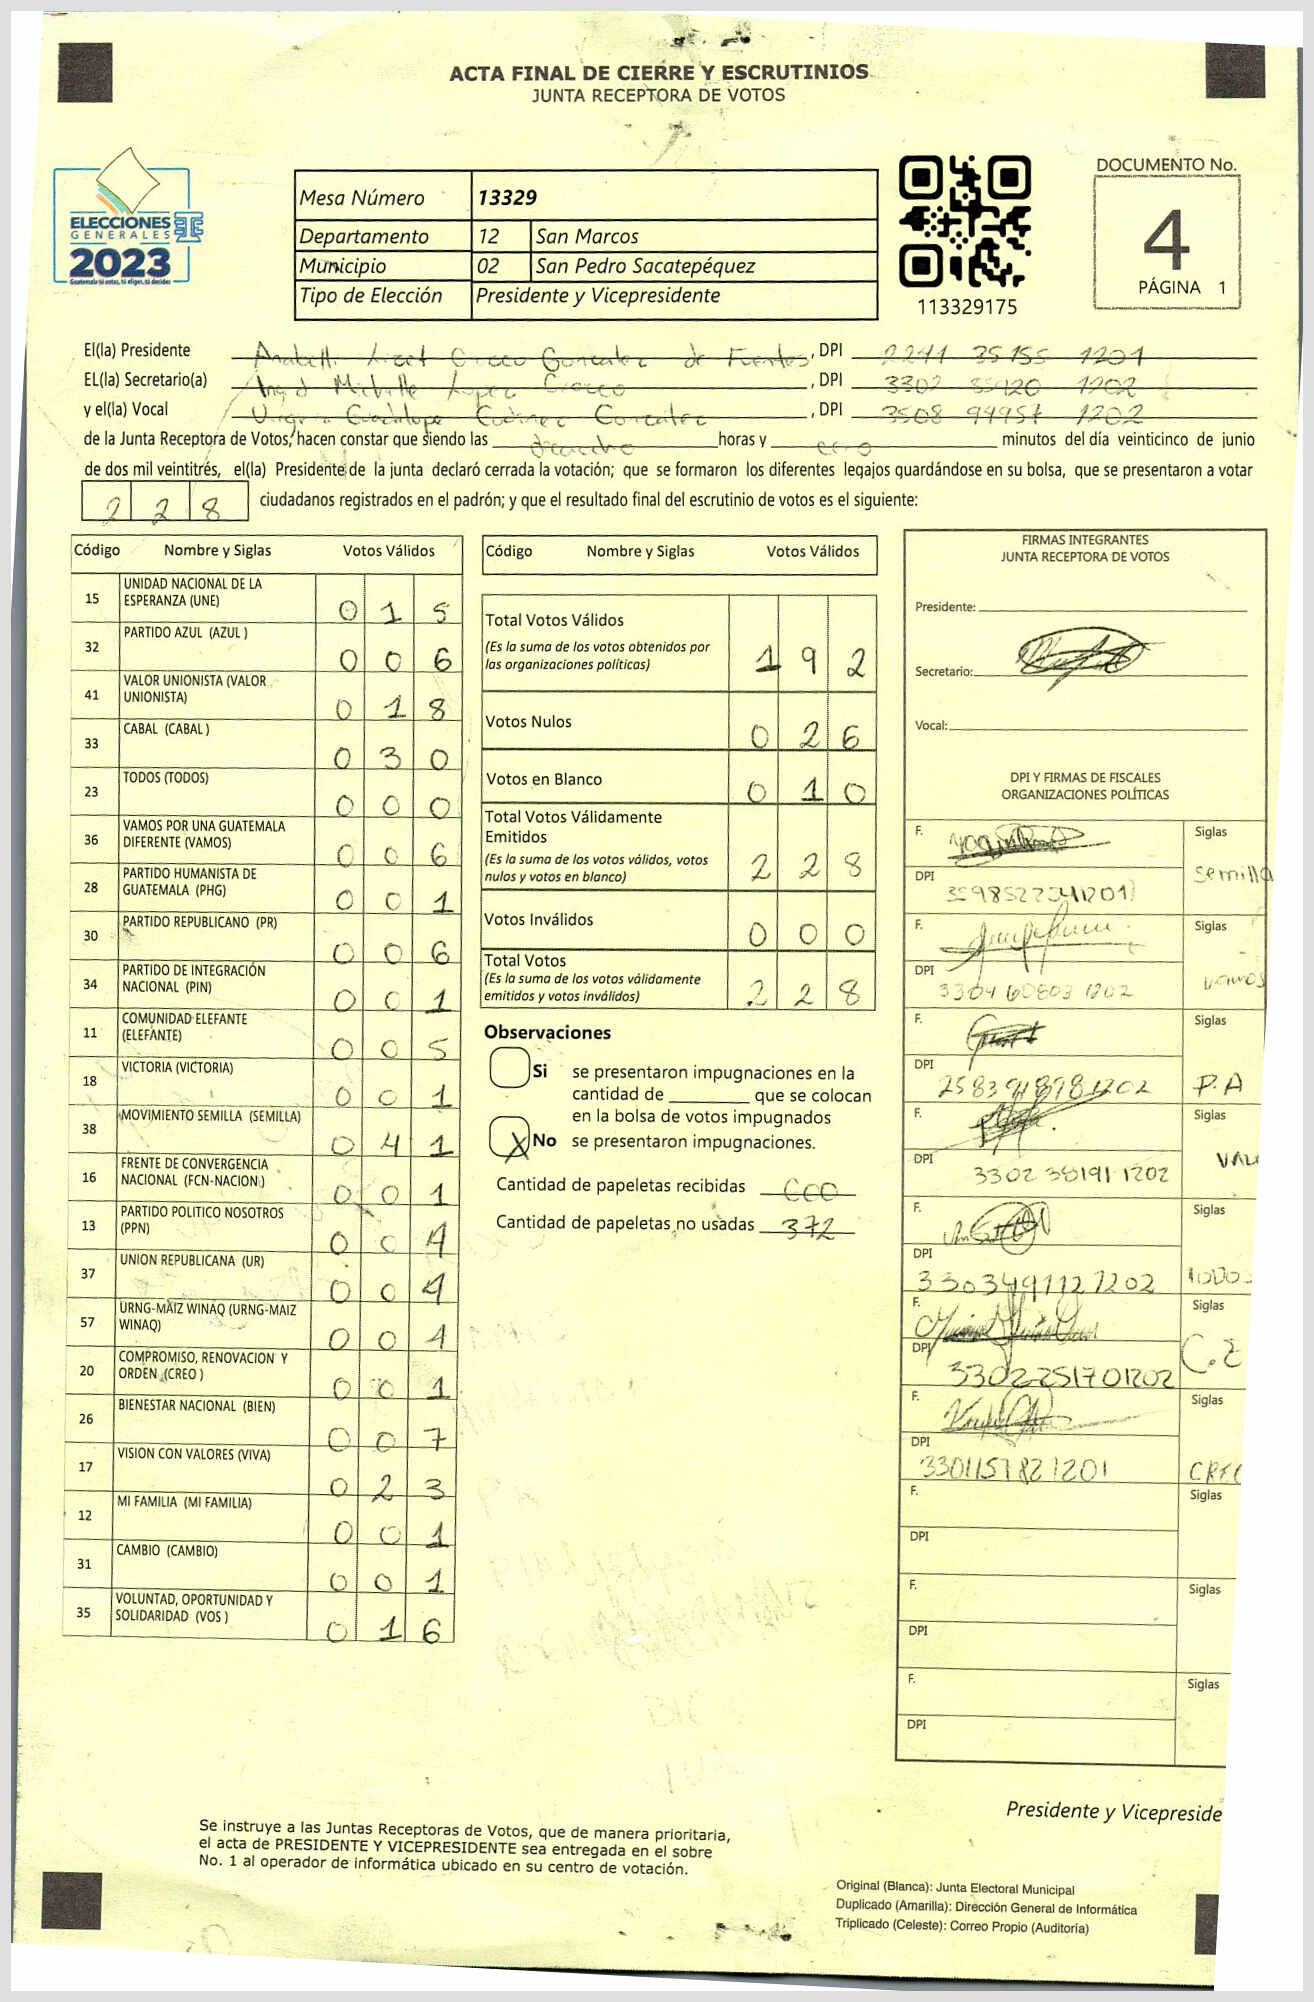 ACTA FINAL DE CIERRE Y ESCRUTINIOS
JUNTA RECEPTORA DE VOTOS
ELECCIONES
GENERALES
2023
Guatemala tú votas, tú eliges, tú decides
Mesa Número 13329
Departamento 12 San Marcos
Municipio 02 San Pedro Sacatepéquez
Tipo de Elección Presidente y Vicepresidente
113329175
DOCUMENTO No.
4
PÁGINA 1
El(la) Presidente Anabelli Lizet Orozco Gonzalez de Fuentes, DPI 2241 35155 1201
EL(la) Secretario(a) Ingrid Michelle Lopez Orozco, DPI 3302 1202
y el(la) Vocal Guadalupe Gonzalez, DPI 3508 94957 1202
de la Junta Receptora de Votos, hacen constar que siendo las horas y cero minutos del día veinticinco de junio
de dos mil veintitrés, el(la) Presidente de la junta declaró cerrada la votación; que se formaron los diferentes legajos guardándose en su bolsa, que se presentaron a votar
228 ciudadanos registrados en el padrón; y que el resultado final del escrutinio de votos es el siguiente:
Código Nombre y Siglas Votos Válidos
15 UNIDAD NACIONAL DE LA ESPERANZA (UNE) 0 1 5
32 PARTIDO AZUL (AZUL ) 0 0 6
41 VALOR UNIONISTA (VALOR UNIONISTA) 0 1 8
33 CABAL (CABAL ) 0 3 0
23 TODOS (TODOS) 0 0 0
36 VAMOS POR UNA GUATEMALA DIFERENTE (VAMOS) 0 0 6
28 PARTIDO HUMANISTA DE GUATEMALA (PHG) 0 0 1
30 PARTIDO REPUBLICANO (PR) 0 0 6
34 PARTIDO DE INTEGRACIÓN NACIONAL (PIN) 0 0 1
11 COMUNIDAD ELEFANTE (ELEFANTE) 0 0 5
18 VICTORIA (VICTORIA) 0 0 1
38 MOVIMIENTO SEMILLA (SEMILLA) 0 4 1
16 FRENTE DE CONVERGENCIA NACIONAL (FCN-NACION ) 0 0 1
13 PARTIDO POLITICO NOSOTROS (PPN) 0 0 4
37 UNION REPUBLICANA (UR) 0 0 4
57 URNG-MAIZ WINAQ (URNG-MAIZ WINAQ) 0 0 4
20 COMPROMISO, RENOVACION Y ORDEN (CREO ) 0 0 1
26 BIENESTAR NACIONAL (BIEN) 0 0 7
17 VISION CON VALORES (VIVA) 0 2 3
12 MI FAMILIA (MI FAMILIA) 0 0 1
31 CAMBIO (CAMBIO) 0 0 1
35 VOLUNTAD, OPORTUNIDAD Y SOLIDARIDAD (VOS ) 0 1 6
Código Nombre y Siglas Votos Válidos
Total Votos Válidos 1 9 2
(Es la suma de los votos obtenidos por
las organizaciones políticas)
Votos Nulos 0 2 6
Votos en Blanco 0 1 0
Total Votos Válidamente
Emitidos 2 2 8
(Es la suma de los votos válidos, votos
nulos y votos en blanco)
Votos Inválidos 0 0 0
Total Votos 2 2 8
(Es la suma de los votos válidamente
emitidos y votos inválidos)
Observaciones
Si se presentaron impugnaciones en la
cantidad de ________ que se colocan
en la bolsa de votos impugnados
X No se presentaron impugnaciones.
Cantidad de papeletas recibidas 600
Cantidad de papeletas no usadas 372
FIRMAS INTEGRANTES
JUNTA RECEPTORA DE VOTOS
Presidente:
Secretario:
Vocal:
DPI Y FIRMAS DE FISCALES
ORGANIZACIONES POLÍTICAS
F. Siglas
DPI Semilla
F. Siglas
DPI 3304 60803 1202 vamos
F. Siglas
DPI P.A
F. Siglas
DPI 3302 38191 1202 VAL
F. Siglas
DPI 3303491127202 TODOS
F. Siglas
DPI 3302251701202 C.E
F. Siglas
DPI 3301157821201 CREO
F. Siglas
DPI
F. Siglas
DPI
F. Siglas
DPI
Presidente y Vicepreside
Se instruye a las Juntas Receptoras de Votos, que de manera prioritaria,
el acta de PRESIDENTE Y VICEPRESIDENTE sea entregada en el sobre
No. 1 al operador de informática ubicado en su centro de votación.
Original (Blanca): Junta Electoral Municipal
Duplicado (Amarilla): Dirección General de Informática
Triplicado (Celeste): Correo Propio (Auditoría)